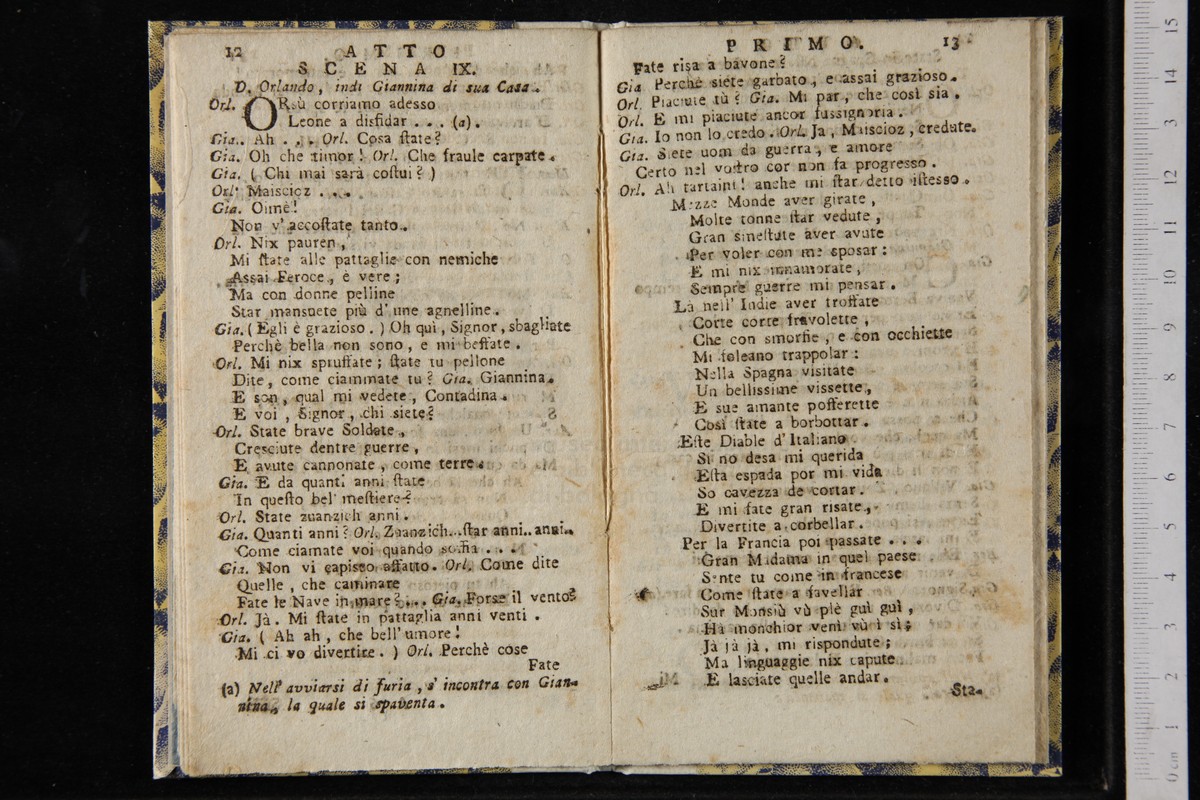 12 ATTO
SCENA IX.
D. Orlando, indi Giannina di sua Casa.
Orl. ORsù corriamo adesso
Leone a disfidar . . . (a).
Gia. Ah . . . Orl. Cosa ſtate?
Gia. Oh che timor! Orl. Che fraule carpate.
Gia. ( Chi mai sarà coſtui? )
Orl. Maiscicz . . .
Gia. Oimè!
Non v' accoſtate tanto.
Orl. Nix pauren,
Mi ſtate alle pattaglie con nemiche
Assai Feroce, è vere;
Ma con donne pelline
Star mansuete più d' une agnelline.
Gia. ( Egli è grazioso. ) Oh quì, Signor, sbagliate
Perchè bella non sono, e mi beffate.
Orl. Mi nix spruffate; ſtate tu pellone
Dite, come ciammate tu? Gia. Giannina.
E son, qual mi vedete, Contadina.
E voi, Signor, chi siete?
Orl. State brave Soldate,
Cresciute dentre guerre,
E avute cannonate, come terre.
Gia. E da quanti anni ſtate
In queſto bel' meſtiere?
Orl. State zuanzich anni.
Gia. Quanti anni? Orl. Zuanzich...ſtar anni..anni..
Come ciamate voi quando soffia . . .
Gia. Non vi capisco affatto. Orl. Come dite
Quelle, che caminare
Fate le Nave in mare? ... Gia. Forse il vento?
Orl. Jà. Mi ſtate in pattaglia anni venti.
Gia. ( Ah ah, che bell' umore!
Mi ci vo divertire. ) Orl. Perchè cose
Fate
(a) Nell' avviarsi di furia, s' incontra con Gian-
nina, la quale si spaventa.
PRIMO. 13
Fate risa a bavone?
Gia Perchè siete garbato, e assai grazioso.
Orl. Piaciute tù? Gia. Mi par, che così sia.
Orl. E mi piaciute ancor fussignoria.
Gia. Io non lo credo. Orl. Ja, Maiscioz, credute.
Gia. Siete uom da guerra, e amore
Certo nel vostro cor non fa progresso.
Orl. Ah tartaint! anche mi ſtar detto iſtesso.
Mezze Monde aver girate,
Molte tonne ſtar vedute,
Gran smeſtute aver avute
Per voler con me sposar:
E mi nix innamorate,
Sempre guerre mi pensar.
Là nell' Indie aver troffate
Corte corte fravolette,
Che con smorfie, e con occhiette
Mi foleano trappolar:
Nella Spagna visitate
Un bellissime vissette,
E sue amante pofferette
Così ſtate a borbottar.
Eſte Diable d' Italiano
Si no desa mi querida
Eſta espada por mi vida
So cavezza de cortar.
E mi fate gran risate,
Divertite a corbellar.
Per la Francia poi passate . . .
Gran Madama in quel paese
Sente tu come in francese
Come ſtate a favellar
Sur Monsiù vù plè guì guì,
Ha monchior venì vù ì sì;
Jà jà jà, mi rispondute;
Ma linguaggie nix capute
E lasciate quelle andar.
Sta-